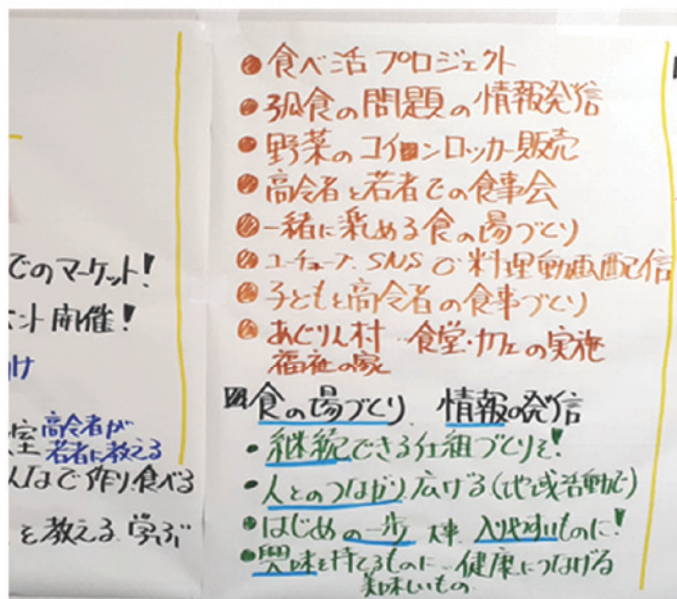 でのマーケット!
ント開催!
け
室 高令者が
若者に教える
んなで作り食べる
を教える 学ぶ
●食べ活プロジェクト
●孤食の問題の情報発信
●野菜のコインロッカー販売
●高令者と若者での食事会
●一緒に楽める食の場づくり
●ユーチューブ.SNSで料理動画配信
●子どもと高令者の食事づくり
●あぐりん村 食堂・カフェの実施
福祉の家
食の場づくり 情報の発信
・継続できる仕組づくりを!
・人とのつながり広げる(地域活動で)
・はじめの一歩 大事 入りやすいものに!
・興味を持てるものに 健康につなげる
美味しいもの